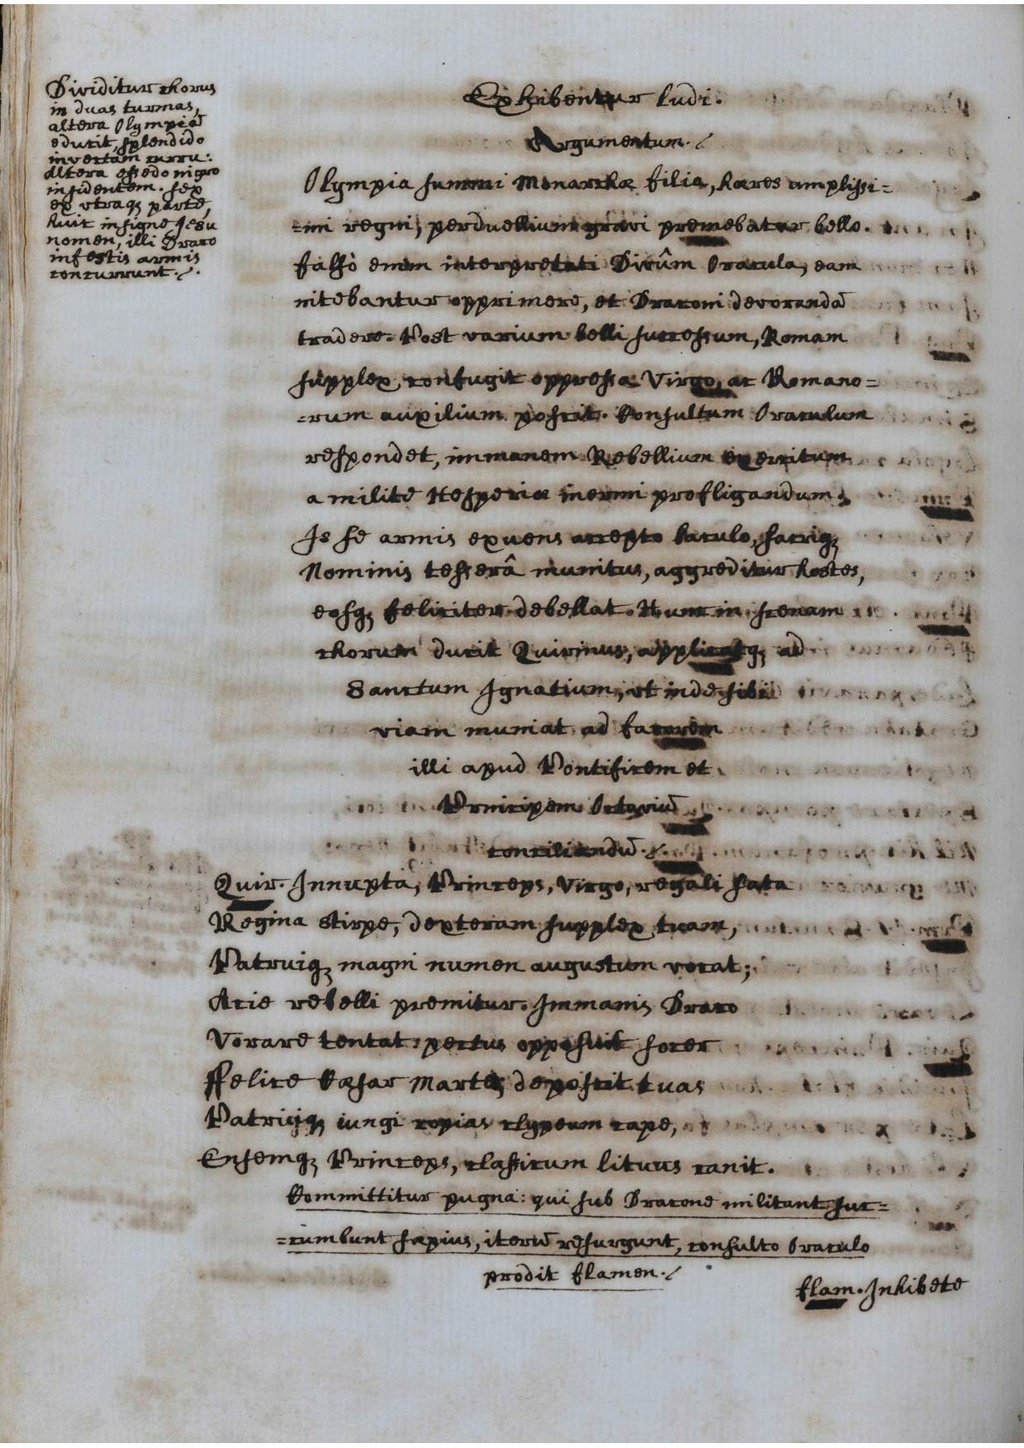 Dividitur chorus
in duas turmas,
altera Olympiā
educit, splendido
invectam curru:
altera essedo nigro
insidentem. sex
ex utraq; parte,
huic insigne Jesu
nomen, illi Draco
infestis armis
concurrunt.
Exhibentur ludi.
Argumentum.
Olympia summi Monarchæ filia, hæres amplissi=
=mi regni, perduellium gravi premebatur bello.
falsò enim interpretati Divûm Oracula, eam
nitebantur opprimere, et Draconi devorandā
tradere. Post varium belli successum, Romam
supplex, confugit oppressa Virgo, ac Romano=
=rum auxilium poscit. Consultum Oraculum
respondet, immanem Rebellium exercitum
a milite Hesperiæ inermi profligandum.
Is se armis exuens accepto baculo, sacriq;
Nominis tesserâ munitus, aggreditur hostes,
eosq; feliciter debellat. Hunc in scenam
chorum ducit Quirinus, applicatq; ad
Sanctum Ignatium, ut inde sibi
viam muniat ad favorem
illi apud Pontificem et
Principem Octaviū
conciliandū.
Quir. Innupta, Princeps, Virgo, regali sata
Regina stirpe, dexteram supplex tuam,
Patruiq; magni numen augustum vocat;
Acie rebelli premitur. Immanis Draco
Vorare tentat: pectus opposuit ferox
Felice Cæsar Marte, deposcit tuas
Patriisq; iungi copias clypeum cape,
Ensemq; Princeps, classicum lituus canit.
Committitur pugna: qui sub Dracone militant suc=
=cumbunt sæpius, iterū resurgunt, consulto Oraculo
prodit flamen.
flam. Inhibete